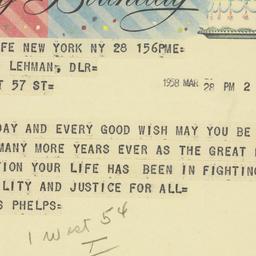 Birthday
FE NEW YORK NY 28 156PME=
LEHMAN, DLR=
T 57 ST=
1958 MAR 28 PM 2
DAY AND EVERY GOOD WISH MAY YOU BE
MANY MORE YEARS EVER AS THE GREAT
TION YOUR LIFE HAS BEEN IN FIGHTING
ILITY AND JUSTICE FOR ALL=
S PHELPS=
1 West 54